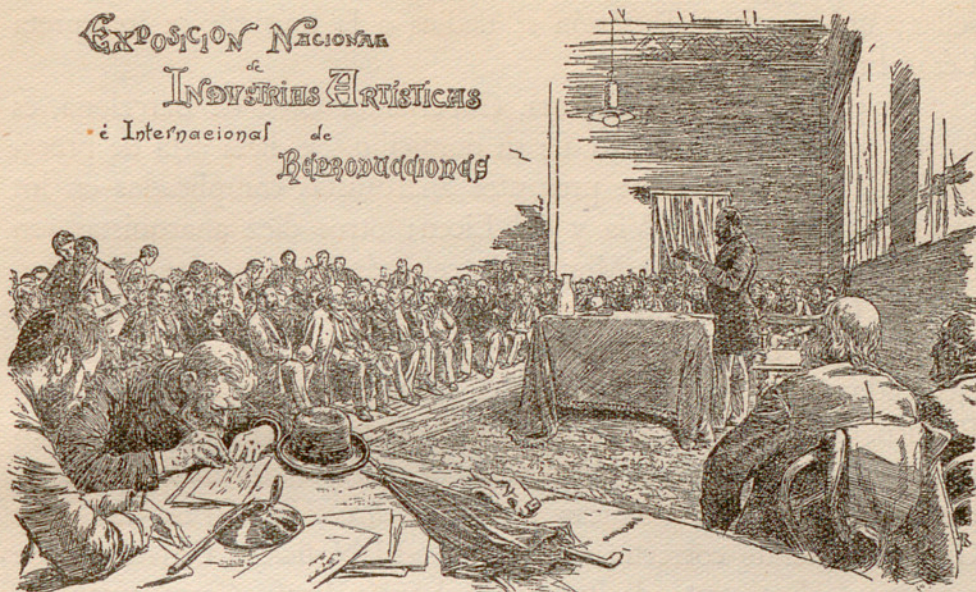 EXPOSICION NACIONAL
de
INDUSTRIAS ARTÍSTICAS
é Internacional de
REPRODUCCIONES